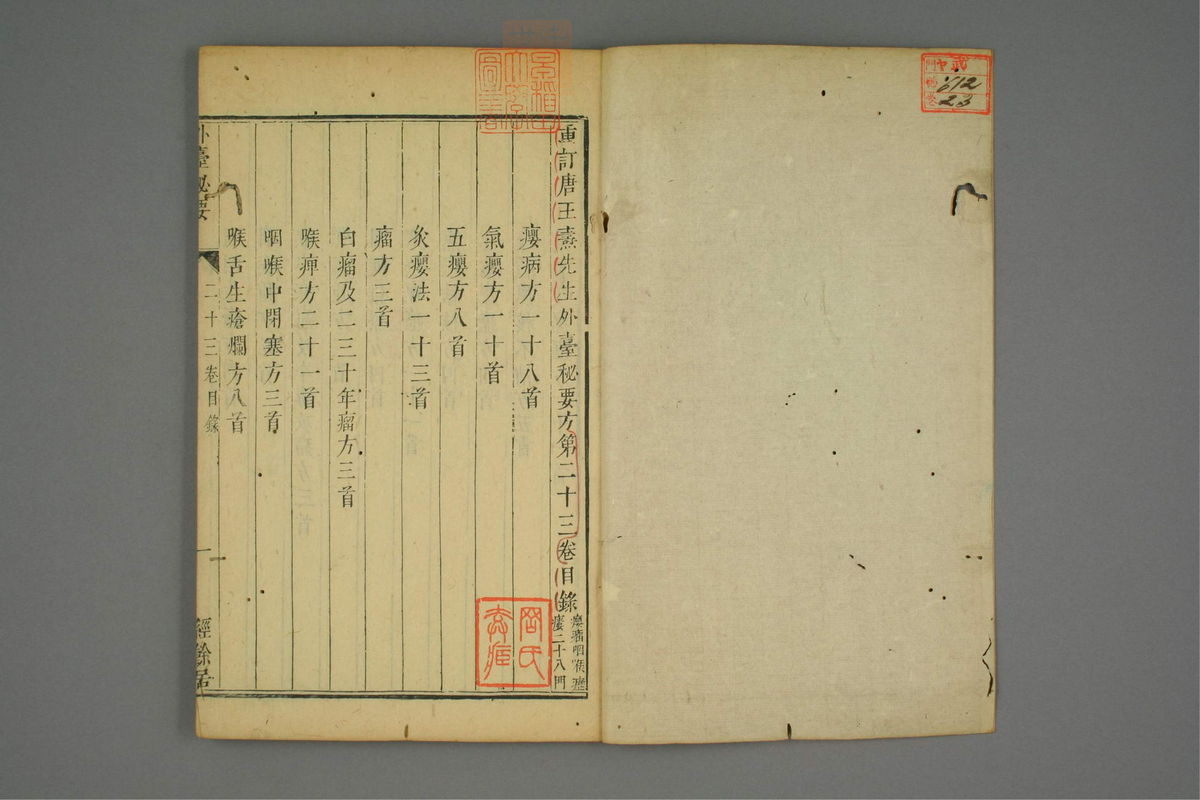 重訂唐王燾先生外臺秘要方第二十三卷目錄
癭瘤咽喉瘰
癧二十八門
癭病方一十八首
氣癭方一十首
五癭方八首
灸癭法一十三首
瘤方三首
白瘤及二三十年瘤方三首
喉痺方二十一首
咽喉中閉塞方三首
喉舌生瘡爛方八首
外臺秘要
二十三卷目錄
一
經餘居
612
23